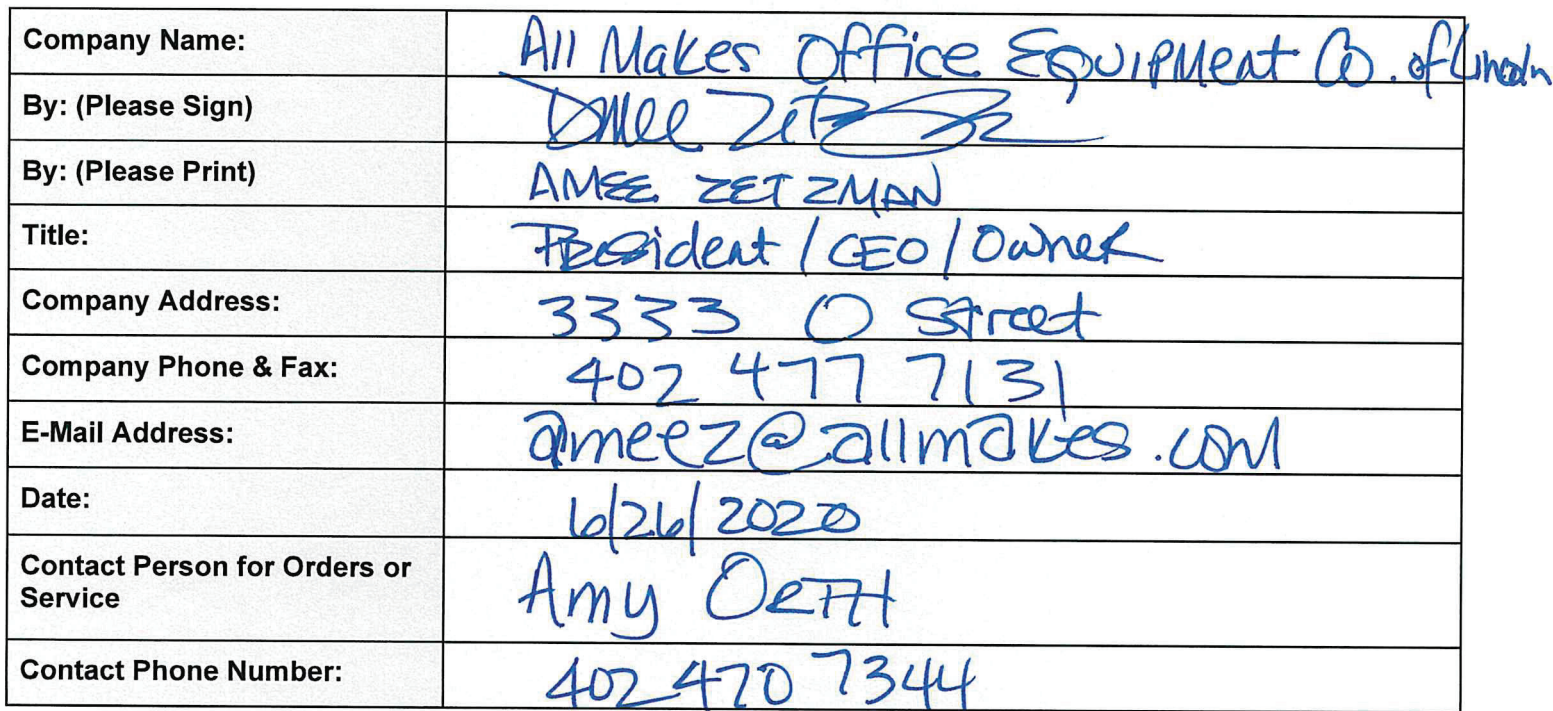 Company Name: All Makes Office Equipment Co. of Lincoln
By: (Please Sign) Amee Zetzman
By: (Please Print) AMEE ZETZMAN
Title: President / CEO / Owner
Company Address: 3333 O Street
Company Phone & Fax: 402 477 7131
E-Mail Address: ameez@allmakes.com
Date: 6/26/2020
Contact Person for Orders or
Service Amy
Contact Phone Number: 402 470 7344